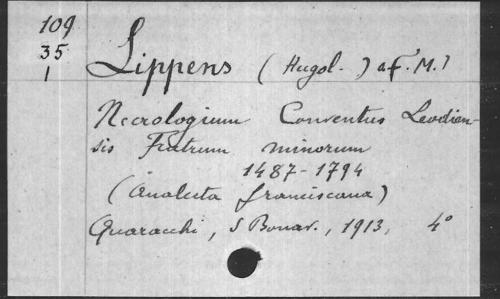 109
35
1
Lippens (Hugol.) a F. M.)
Necrologium Conventus Leodien-
sis Fratrum minorum
1487-1794
(Analecta franciscana)
Quaracchi, S Bonav., 1913, 4°